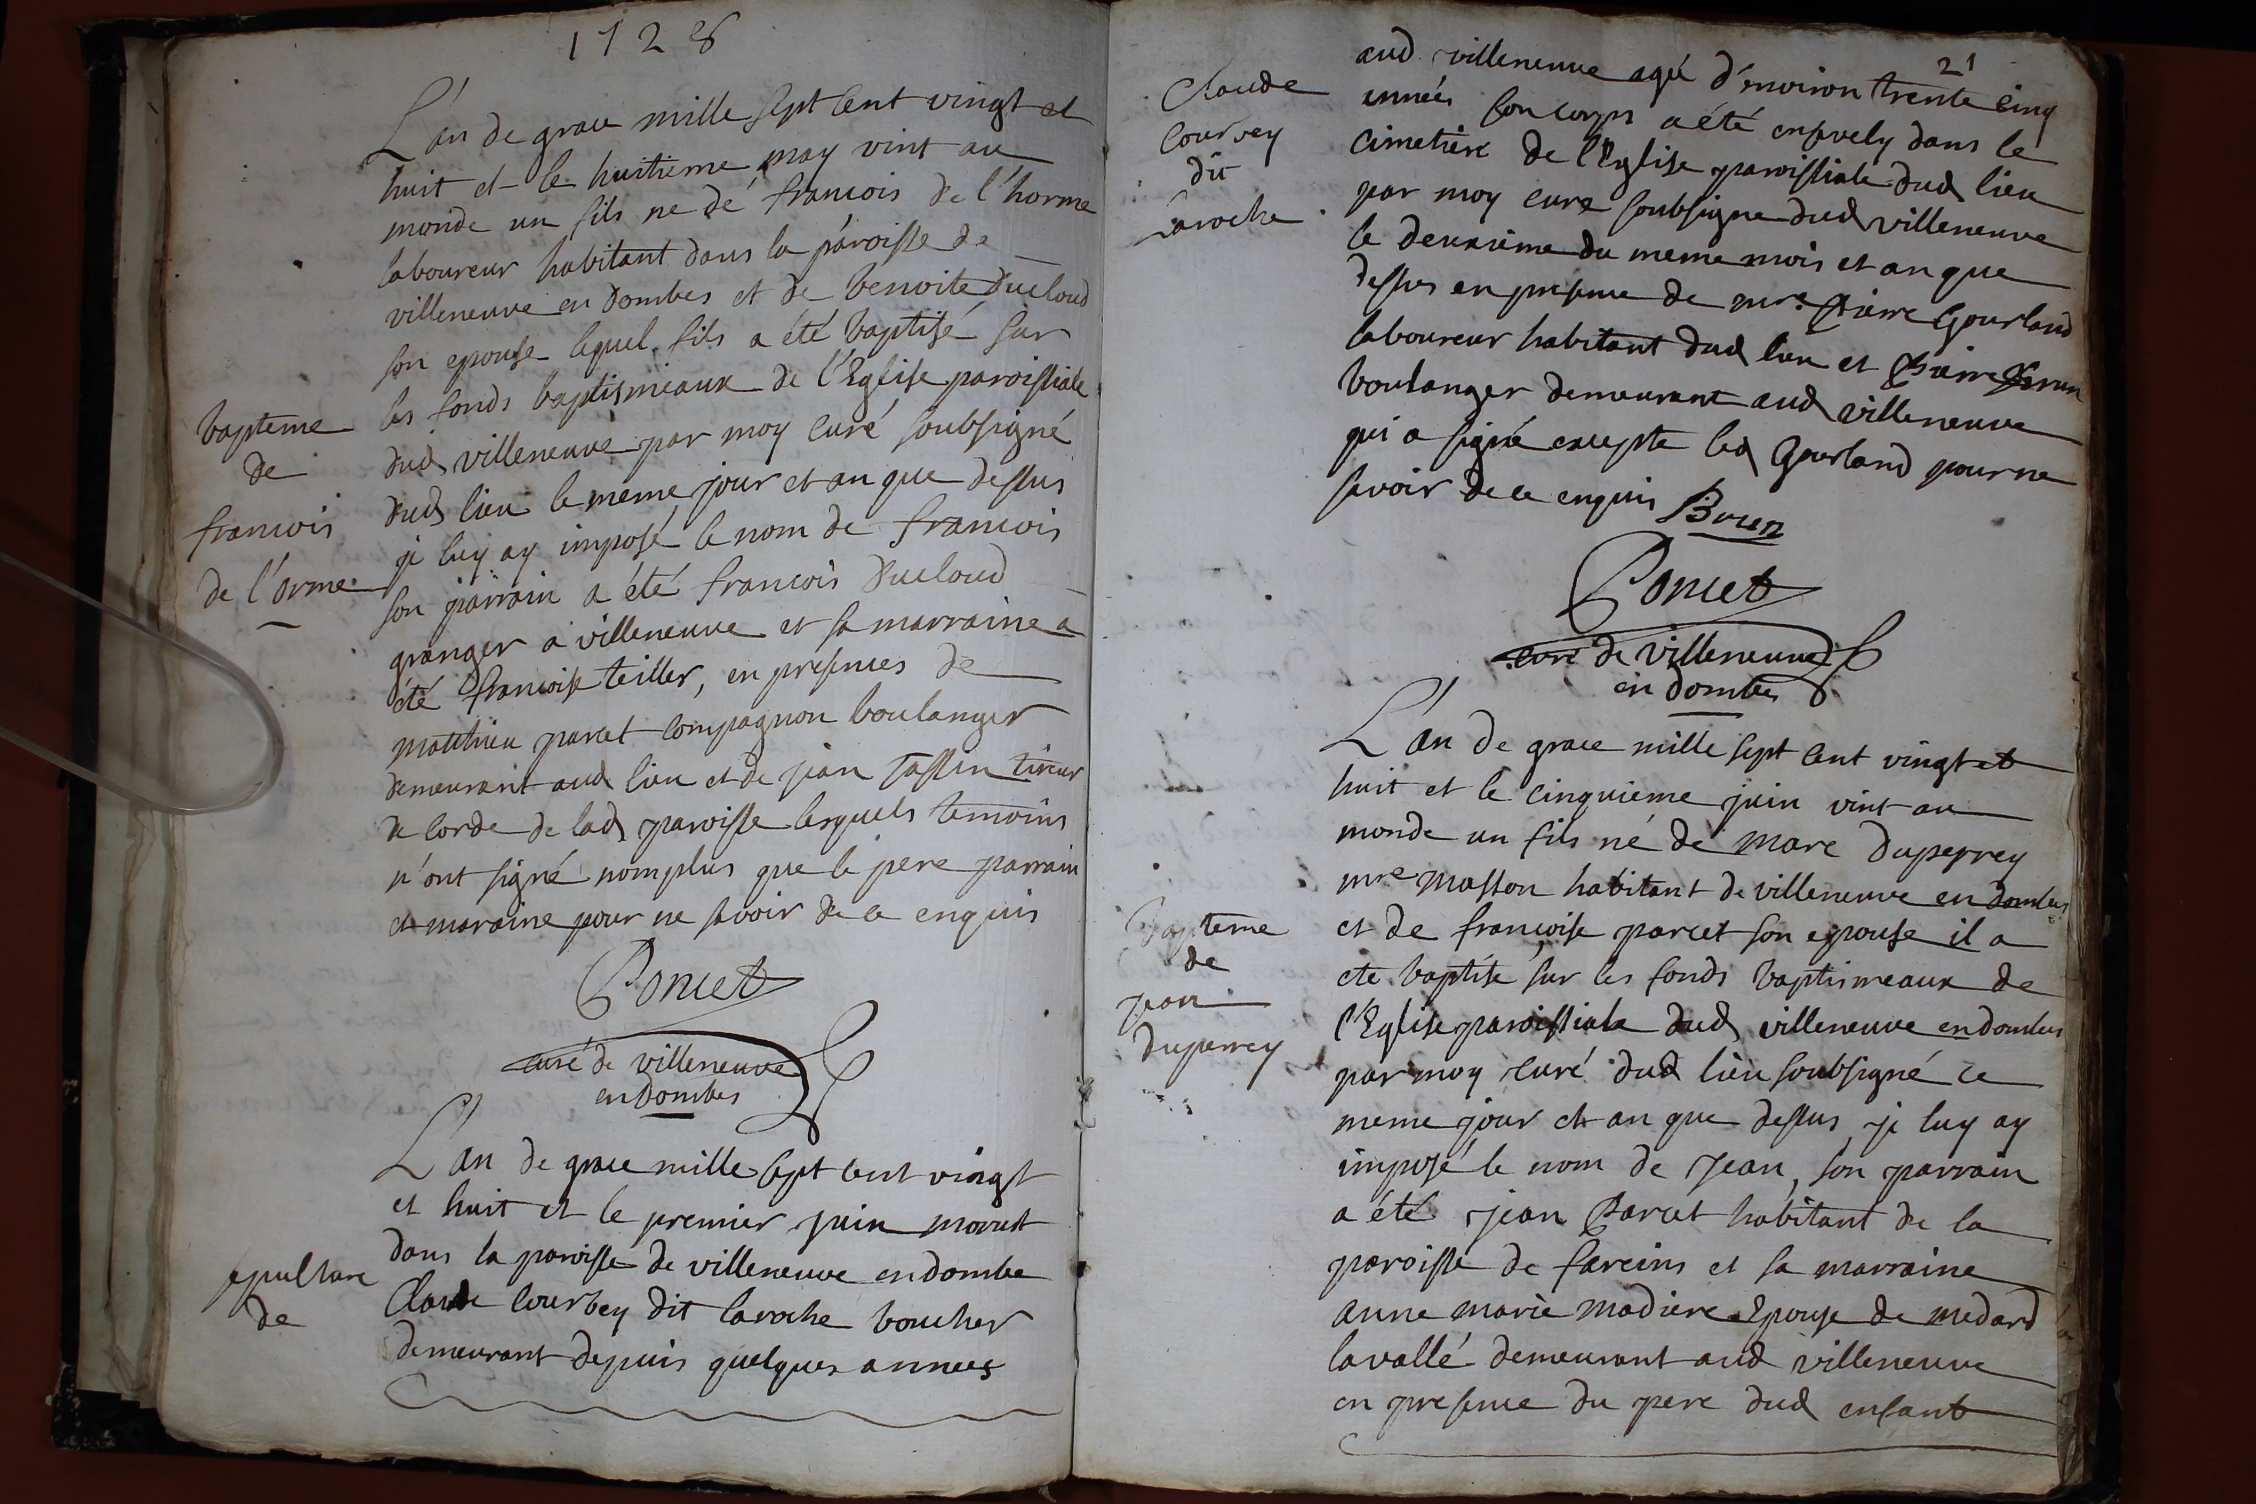 1728
L'an de grace mille sept cent vingt et
huit et le huitieme may vint au
monde un fils né de francois de l'horme
laboureur habitant dans la paroisse de
villeneuve en Dombes et de benoite Ducloud
son epouse lequel fils a été baptisé sur
les fonds baptismeaux de l'Eglise paroissiale
dud villeneuve par moy curé soubsigné
dud lieu le meme jour et an que dessus
je luy ay imposé le nom de francois
son parrain a été francois Ducloud
granger a villeneuve et sa marraine a
été francoise teiller, en presences de
matthieu parcet compagnon boulanger
demeurant aud lieu et de jean tassin tireur
de corde de lad paroisse lesquels temoins
n'ont signé nomplus que le pere parrain
et maraine pour ne savoir de ce enquis
bapteme
de
francois
de l'orme
Poncet
curé de villeneuve
en dombes
L'an de grace mille sept cent vingt
et huit et le premier juin mourut
dans la paroisse de villeneuve en dombe
Claude Courbey dit laroche boucher
demeurant depuis quelques annees
sepulture
de
21
Claude
Courbey
dit
Laroche
aud villeneuve agé d'environ trente cinq
années son corps a été ensevely dans le
cimetiere de l'Eglise paroissiale dud lieu
par moy curé soubsigné dud villeneuve
le deuxieme du meme mois et an que
dessus en presence de mre Pierre Gourland
laboureur habitant dud lieu et Pierre Brun
boulanger demeurant aud villeneuve
qui a signé excepté led Gourland pour ne
savoir de ce enquis Brun
Poncet
curé de villeneuve
en dombes
L'an de grace mille sept cent vingt et
huit et le cinquieme juin vint au
monde un fils né de marc Duperrey
mre masson habitant de villeneuve en dombes
et de françoise parcet son epouse il a
ete baptisé sur les fonds baptismeaux de
l'Eglise paroissiale dud villeneuve en dombes
par moy curé dud lieu soubsigné ce
meme jour et an que dessus je luy ay
imposé le nom de Jean, son parrain
a été jean Parcet habitant de la
paroisse de fareins et sa marraine
anne marie madiere Epouse de medard
lavallé demeurant aud villeneuve
en presence du pere dud enfant
Bapteme
de
jean
duperrey